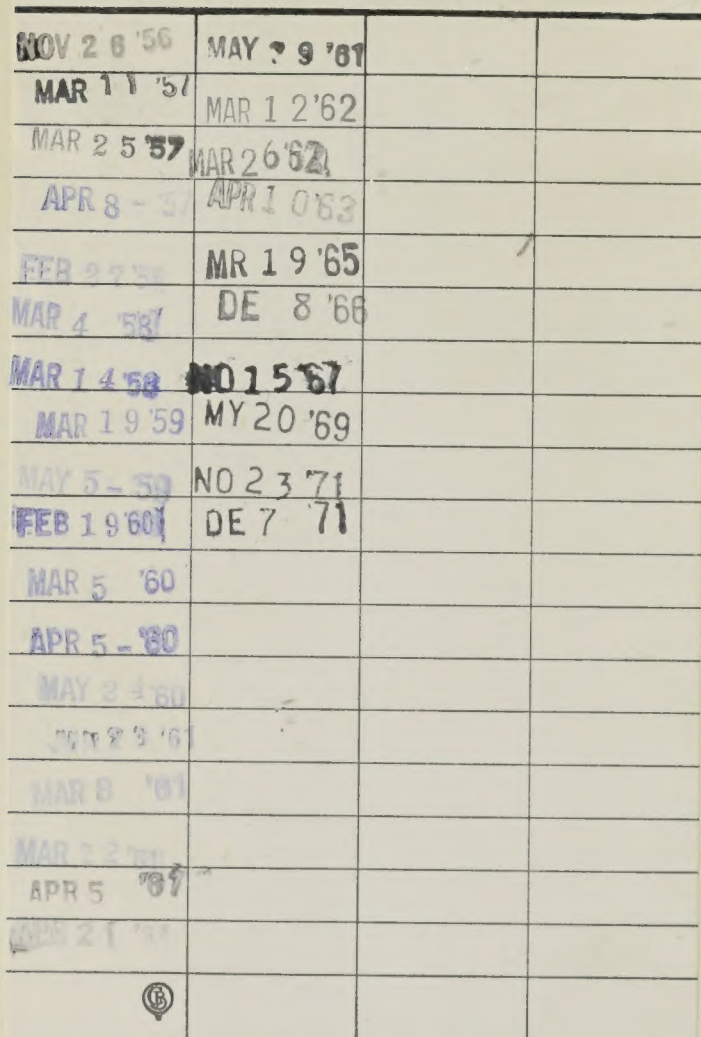 NOV 26 '56
MAR 11 '57
MAR 25 '57
APR 8 - '57
FEB 27 '58
MAR 4 '58
MAR 14 '58
MAR 19 '59
MAY 5 - 59
FEB 19 '60
MAR 5 '60
APR 5 - '60
MAY 24 '60
23 '61
MAR 8 '61
MAR 22 '61
APR 5 '61
APR 21 '61
MAY 9 '61
MAR 12 '62
MAR 26 '62
APR 10 '63
MR 19 '65
DE 8 '66
NO 15 '67
MY 20 '69
NO 23 '71
DE 7 '71